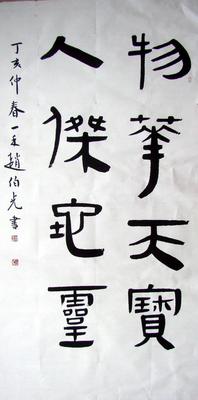 物華天寶
人傑地靈
丁亥仲春一禾趙伯光書